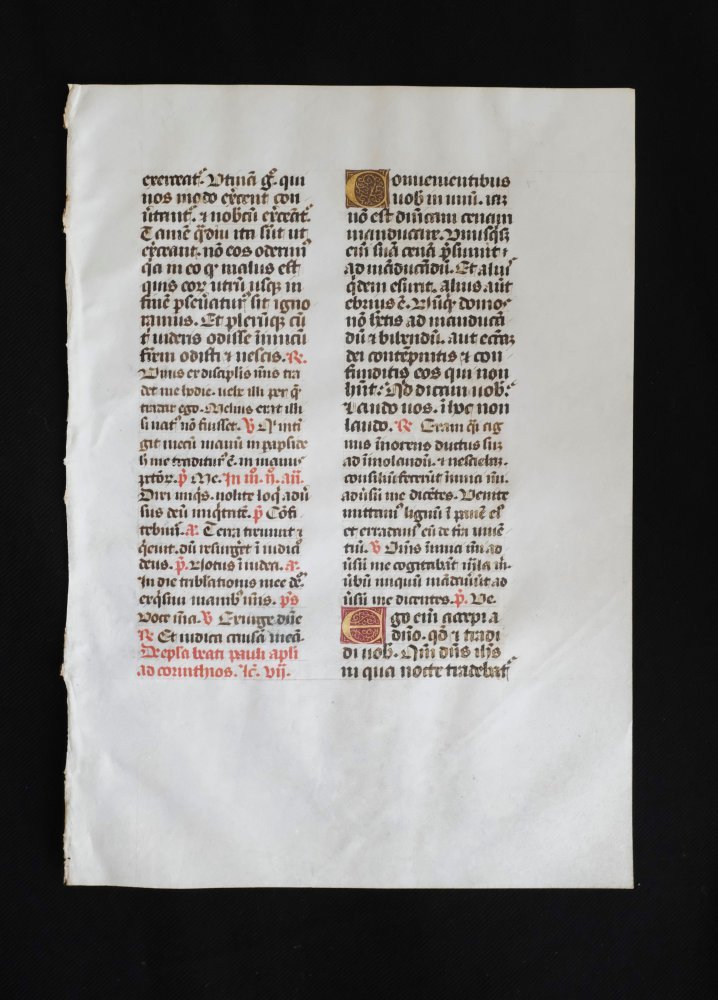 exerceat᷑. Vtinā g̊. qui
nos modo ex̄cent con
ūtant᷑. ⁊ nobcū ex̄ceāt᷑.
Tamē q̄diu ita sūt ut
ex̄ceant. nō eos oderim᷒
q̄a in eo q̄ malus est
quis eor᷑ utrū usq̨ in
finē ꝑseuerat᷑ sit igno
ramus. Et plerūq̨ cū
t᷑ uideris odisse inimicū
frēm odisti ⁊ nescis. ℟.
Vnus ex discipłis mīs tra
det me hodie. ueh illi per q̄
tradar ego. Melius erat illi
si nat᷒ nō fuisset. ℣ Qi inti
git mecū manū in paꝑside
h̄ me traditur᷒ ē. in manus
pctōr᷑. p̄ Me. In iii. n̄. añ.
Dixi iniq̄s. nolite loq̄ adū
sus deū iniq̄tatē. p̄ Cōfi
tebim᷒. a᷑. Terra tremuit ⁊
q̄euit. dū resurg̊et ī iudicio
deus. p̄. Notus ī iudea. a᷑.
In die tribłationis mee dē᷒
exq̄siui manib᷒ mīs. p̄s
Voce mīa. ℣ Exurge dn̄e
℟ Et iudica causā meā.
De epła beati pauli apłi
ad corinthios. lc̄. vii.
Conuenientibus
uob᷒ in unū. iaꝫ
nō est dn̄icam cenam
manducare. Vnusq̨sq̨
eī suā cenā p̄sumit
ad māducādū. Et alius᷒
q̊dem esurit. alius aūt
ebrius ē. Nūq̊ domo᷒
nō h̄etis ad manducā
dū ⁊ bibendū. aut eccłaꝫ
dei contēpnitis ⁊ con
funditis eos qui non
hn̄t. Qd dicam uob᷒.
laudo uos. ī hoc non
laudo. ℟ Eram q̄i ag
nus īnocens ductus sum
ad īmolandū. ⁊ nescieb̄.
consiliū fecerūt inimici mī.
adūsū me dicētes. Venite
mittam᷒ lignū ī panē ei᷒
et erradam᷒ eū de tr̄a uiuē
tiū. ℣ Om̄s inimici mī ad
ūsū me cogitabāt mała m̄.
ūbū iniquū mādauerūt ad
ūsū me dicentes. p̄. Ve.
Ego eī accepi a
dn̄o. qd̄ ⁊ tradi
di uob᷒. Qm̄ dn̄s ih̄s
in qua nocte tradebat᷑